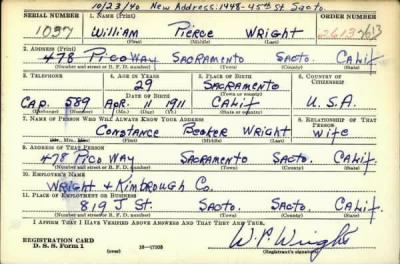 10/23/40 New Address: 1448-45th St. Sacto.
SERIAL NUMBER 1. NAME (Print) ORDER NUMBER
1037 William Pierce Wright 2613
(First) (Middle) (Last)
2. ADDRESS (Print)
478 Pico Way Sacramento Sacto. Calif
(Number and street or R. F. D. number) (Town) (County) (State)
3. TELEPHONE 4. AGE IN YEARS 5. PLACE OF BIRTH 6. COUNTRY OF CITIZENSHIP
29 Sacramento
DATE OF BIRTH (Town or county)
Cap. 589 Apr. 11 1911 Calif U.S.A.
(Exchange) (Number) (Mo.) (Day) (Yr.) (State or country)
7. NAME OF PERSON WHO WILL ALWAYS KNOW YOUR ADDRESS 8. RELATIONSHIP OF THAT PERSON
Constance Becker Wright Wife
(Mr., Mrs., Miss) (First) (Middle) (Last)
9. ADDRESS OF THAT PERSON
478 Pico Way Sacramento Sacto. Calif.
(Number and street or R. F. D. number) (Town) (County) (State)
10. EMPLOYER'S NAME
Wright & Kimbrough Co.
11. PLACE OF EMPLOYMENT OR BUSINESS
819 J St. Sacto. Sacto. Calif.
(Number and street or R. F. D. number) (Town) (County) (State)
I AFFIRM THAT I HAVE VERIFIED ABOVE ANSWERS AND THAT THEY ARE TRUE.
REGISTRATION CARD
D. S. S. Form 1 16-17105 W. P. Wright
(over) (Registrant's signature)